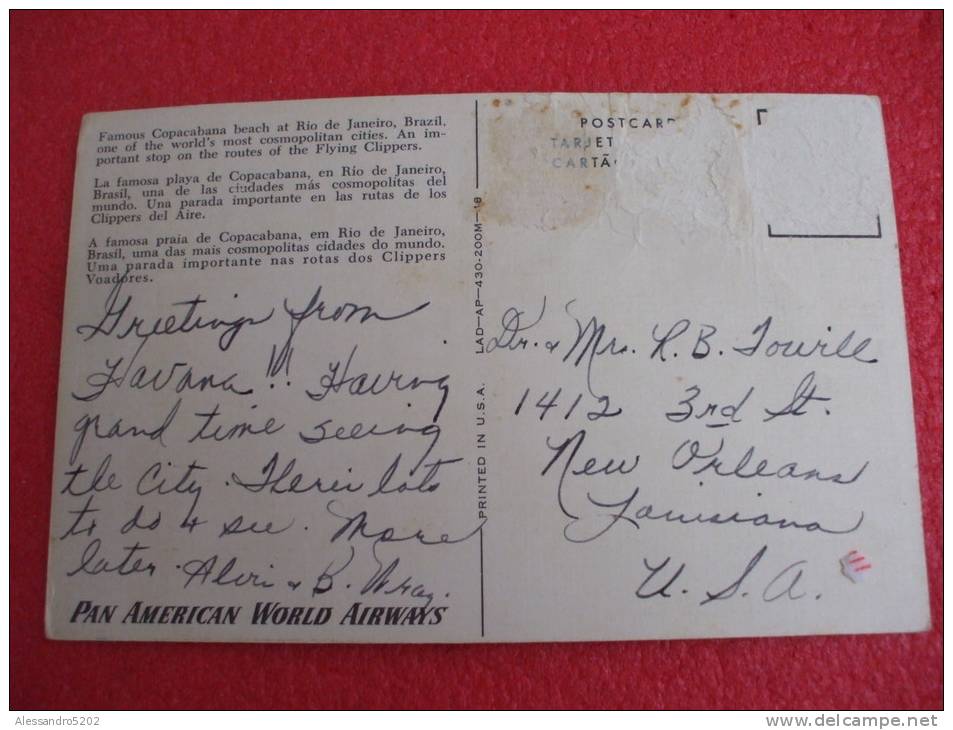 Famous Copacabana beach at Rio de Janeiro, Brazil,
one of the world's most cosmopolitan cities. An im-
portant stop on the routes of the Flying Clippers.
La famosa playa de Copacabana, en Río de Janeiro,
Brasil, una de las ciudades más cosmopolitas del
mundo. Una parada importante en las rutas de los
Clippers del Aire.
A famosa praia de Copacabana, em Rio de Janeiro,
Brasil, uma das mais cosmopolitas cidades do mundo.
Uma parada importante nas rotas dos Clippers
Voadores.
Greetings from
Havana!! Having
grand time seeing
the City. There's lots
to do & see. More
later. & B. Wray.
PAN AMERICAN WORLD AIRWAYS
PRINTED IN U.S.A. LAD—AP—430-200M—
POSTCARD
TARJET
CARTÃ
Dr. & Mrs. R. B. Towill
1412 3rd St.
New Orleans
Louisiana
U. S. A.
Alessandro5202
www.delcampe.net